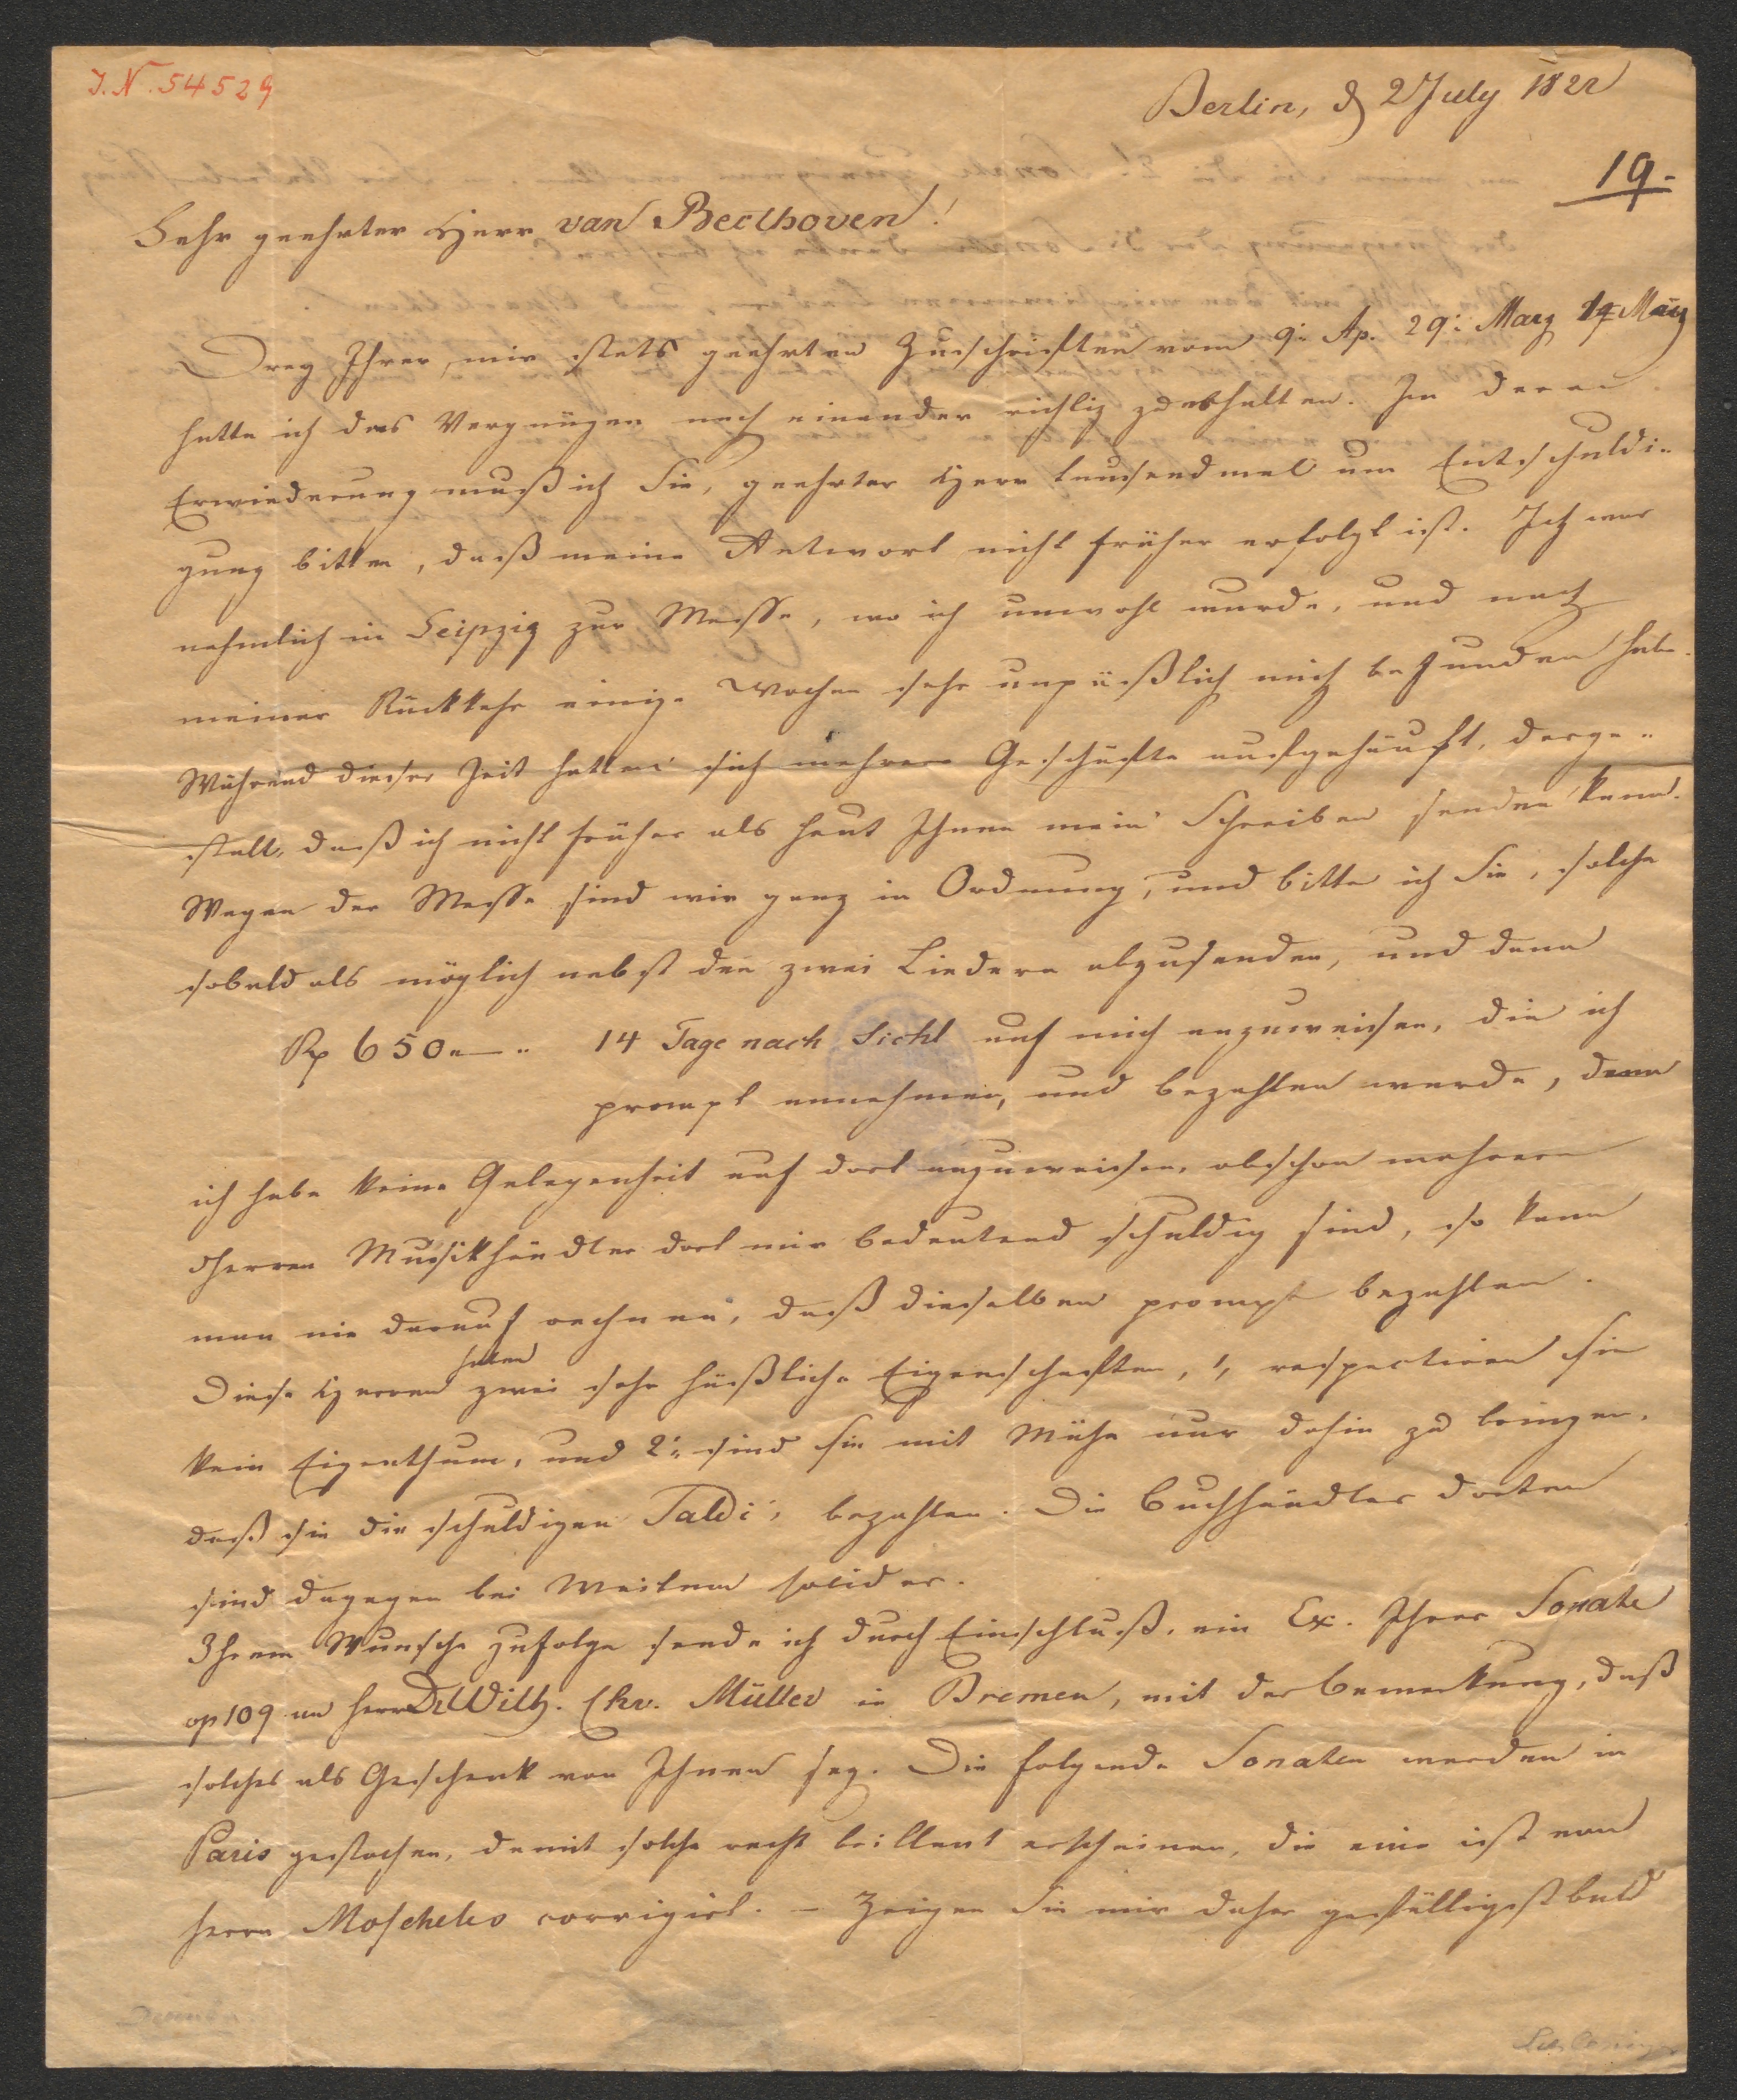 J.N. 54529
Berlin, d 2 July 1822
19.
Sehr geehrter Herr van Beethoven!
Drey Ihrer, mir stets geehrten Zuschriften vom 9: Ap. 29: May 19 May
hatte ich das Vergnügen nach einander richtig zu erhalten. In deren
Erwiederung muß ich Sie, geehrter Herr tausendmal um Entschuldi-
gung bitten, daß meine Antwort nicht früher erfolgt ist. Ich war
nehmlich in Leipzig zur Messe, wo ich unwohl wurde, und nach
meiner Rückkehr einige Wochen sehr unpäßlich mich befunden habe.
Während dieser Zeit hatten sich mehrere Geschäfte aufgehäuft, derge-
stalt, daß ich nicht früher als heut Ihnen mein Schreiben senden kann.
Wegen der Messe sind wir ganz in Ordnung, und bitte ich Sie, solche
sobald als möglich nebst den zwei Liedern abzusenden, und dann
Rp 650 – 14 Tage nach Sicht auf mich anzuweisen, die ich
prompt annehmen, und bezahlen werde, denn
ich habe keine Gelegenheit auf dort anzuweisen, obschon mehrere
Herren Musikhändler dort mir bedeutend schuldig sind, so kann
man nie darauf rechnen, daß dieselben prompt bezahlen.
Diese Herren haben zwei sehr häßliche Eigenschaften, 1, respectiren sie
kein Eigenthum, und 2: sind sie mit Mühe nur dahin zu bringen,
daß sie die schuldigen Saldi, bezahlen. Die Buchhändler dorten
sind dagegen bei Weitem solider.
Ihrem Wunsche zufolge sende ich durch Einschluß, ein Ex. Ihrer Sonate
op 109 an Herrn Dr Wilh. Chr. Müller in Bremen, mit der Bemerkung, daß
solches als Geschenk von Ihnen sey. Die folgende Sonaten werden in
Paris gestochen, damit solche recht brillant erscheinen, die eine ist von
Herrn Moscheles corrigirt. – Zeigen Sie mir daher gefälligst bald